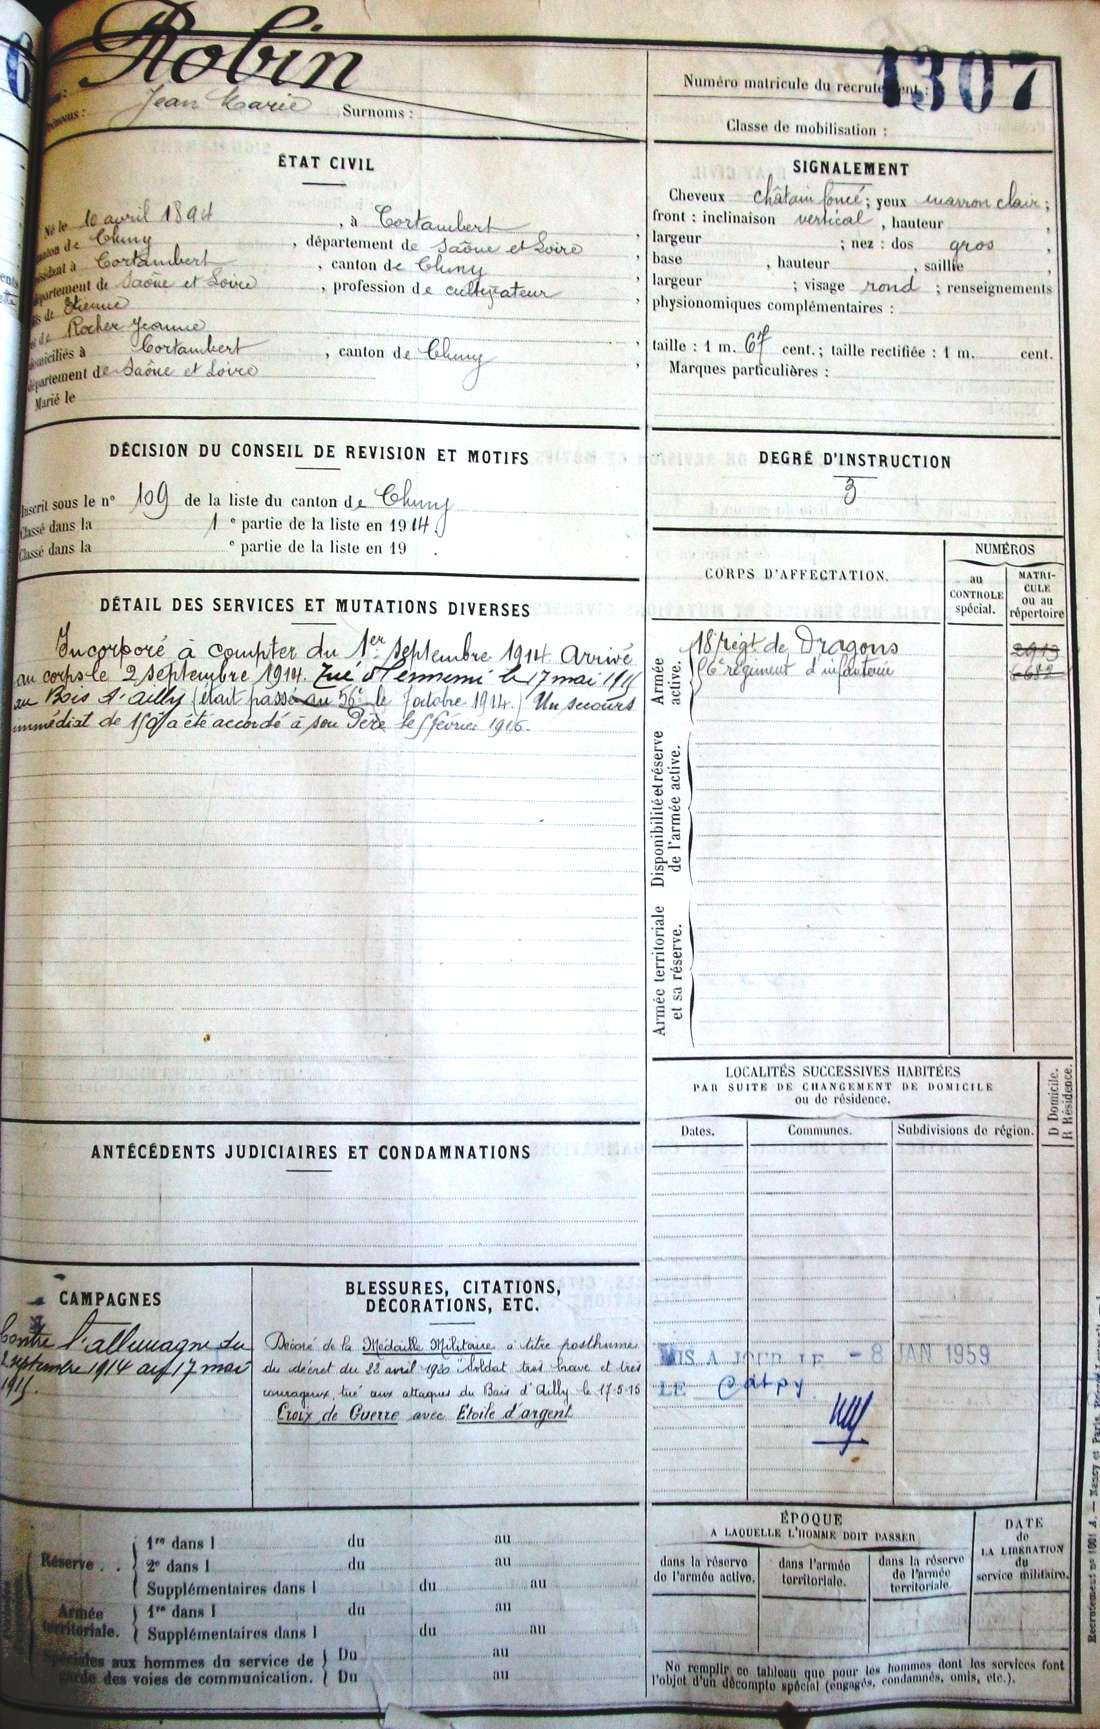 6
Robin
1307
Jean Marie Surnoms :
Numéro matricule du recrutement :
Classe de mobilisation :
ÉTAT CIVIL
Né le 10 avril 1894, à Cortambert,
canton de Cluny, département de Saône et Loire,
résidant à Cortambert, canton de Cluny,
département de Saône et Loire, profession de cultivateur,
fils de Etienne
et de Rocher Jeanne,
domiciliés à Cortambert, canton de Cluny,
département de Saône et Loire
Marié le
SIGNALEMENT
Cheveux châtain foncé ; yeux marron clair ;
front : inclinaison vertical, hauteur ,
largeur ; nez : dos gros ,
base , hauteur , saillie ,
largeur ; visage rond ; renseignements
physionomiques complémentaires :
taille : 1 m. 67 cent. ; taille rectifiée : 1 m. cent.
Marques particulières :
DÉCISION DU CONSEIL DE REVISION ET MOTIFS
Inscrit sous le n° 109 de la liste du canton de Cluny
Classé dans la 1 e partie de la liste en 1914.
Classé dans la e partie de la liste en 19 .
DEGRÉ D'INSTRUCTION
3
DÉTAIL DES SERVICES ET MUTATIONS DIVERSES
Incorporé à compter du 1er septembre 1914. Arrivé
au corps le 2 septembre 1914. Tué à l'ennemi le 17 mai 1915
au Bois d'Ailly (était passé au 56e le 7 octobre 1914.) Un secours
immédiat de 150f a été accordé à son Père le 5 février 1916.
CORPS D'AFFECTATION.
NUMÉROS
au CONTROLE spécial.
MATRICULE ou au répertoire
Armée active.
18e régt de Dragons
56e régiment d'infanterie
Disponibilité et réserve de l'armée active.
Armée territoriale et sa réserve.
LOCALITÉS SUCCESSIVES HABITÉES
PAR SUITE DE CHANGEMENT DE DOMICILE
ou de résidence.
D Domicile.
R Résidence.
Dates. Communes. Subdivisions de région.
ANTÉCÉDENTS JUDICIAIRES ET CONDAMNATIONS
CAMPAGNES
Contre l'allemagne du
2 septembre 1914 au 17 mai
1915.
BLESSURES, CITATIONS,
DÉCORATIONS, ETC.
Décoré de la Médaille Militaire à titre posthume
du décret du 22 avril 1920 "Soldat très brave et très
courageux, tué aux attaques du Bois d'Ailly le 17-5-15
Croix de Guerre avec Etoile d'argent
MIS A JOUR LE - 8 JAN 1959
LE
Réserve . .
1re dans l du au
2e dans l du au
Supplémentaires dans l du au
Armée territoriale.
1re dans l du au
Supplémentaires dans l du au
Spéciales aux hommes du service de
garde des voies de communication.
Du au
Du au
ÉPOQUE
A LAQUELLE L'HOMME DOIT PASSER
dans la réserve de l'armée active.
dans l'armée territoriale.
dans la réserve de l'armée territoriale.
DATE
de
LA LIBÉRATION
du
service militaire.
Ne remplir ce tableau que pour les hommes dont les services font
l'objet d'un décompte spécial (engagés, condamnés, omis, etc.).